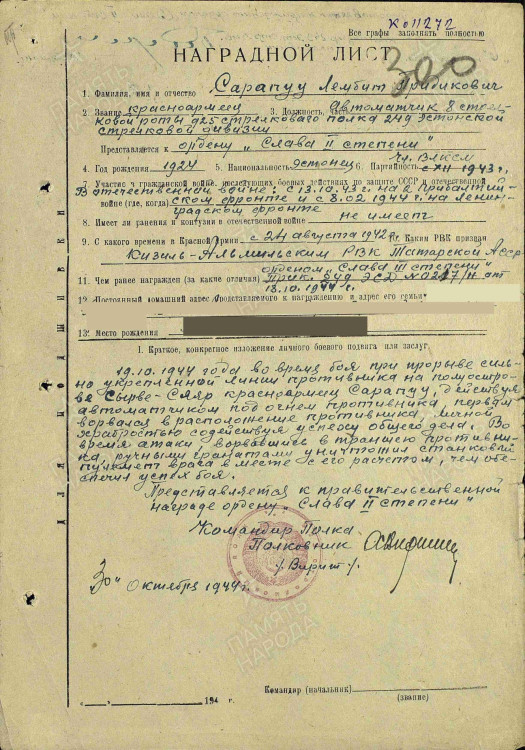 Ко11272
Все графы заполнять полностью
НАГРАДНОЙ ЛИСТ
300
1. Фамилия, имя и отчество Сарапуу Лембит
2. Звание красноармеец 3. Должность, часть Автоматчик 8 стрел-
ковой роты 925 стрелкового полка 249 Эстонской
стрелковой дивизии
Представляется к ордену „Слава II степени"
4. Год рождения 1924 5. Национальность эстонец 6. Партийность чл. ВЛКСМ
с XII 1943 г.
7. Участие в гражданской войне, последующих боевых действиях по защите СССР и отечественной
В отечественной войне: с 13.10.43 г. на 2 Прибалтий-
войне (где, когда) ском фронте и с 8.02 1944 г. на Ленин-
градском фронте
8. Имеет ли ранения и контузии в отечественной войне не имеет
9. С какого времени в Красной Армии с 24 августа 1942 г. Каким РВК призван
РВК Татарской Асср
орденом „Слава III степени"
11. Чем ранее награжден (за какие отличия) Прик. 249 ЭСД № 0217/н от
18.10.1944 г.
12. Постоянный домашний адрес представляемого к награждению и адрес его семьи
13. Место рождения
I. Краткое, конкретное изложение личного боевого подвига или заслуг.
19.10.1944 года во время боя при прорыве силь-
но укрепленной линии противника на полуостро-
ве Сырве-Сяяр красноармеец Сарапуу, действуя
автоматчиком под огнем противника первым
ворвался в расположение противника, личной
храбростью содействуя успеху общего дела. Во
время атаки ворвавшись в траншею противни-
ка, ручными гранатами уничтожил станковый
пулемет врага вместе с его расчетом, чем обе-
спечил успех боя.
Представляется к правительственной
награде ордену „Слава II степени"
Командир Полка
Полковник
/Вирит/.
30" Октября 1944 г.
ПАМЯТЬ
НАРОДА
Командир (начальник)
(звание)
„ " 194 г.